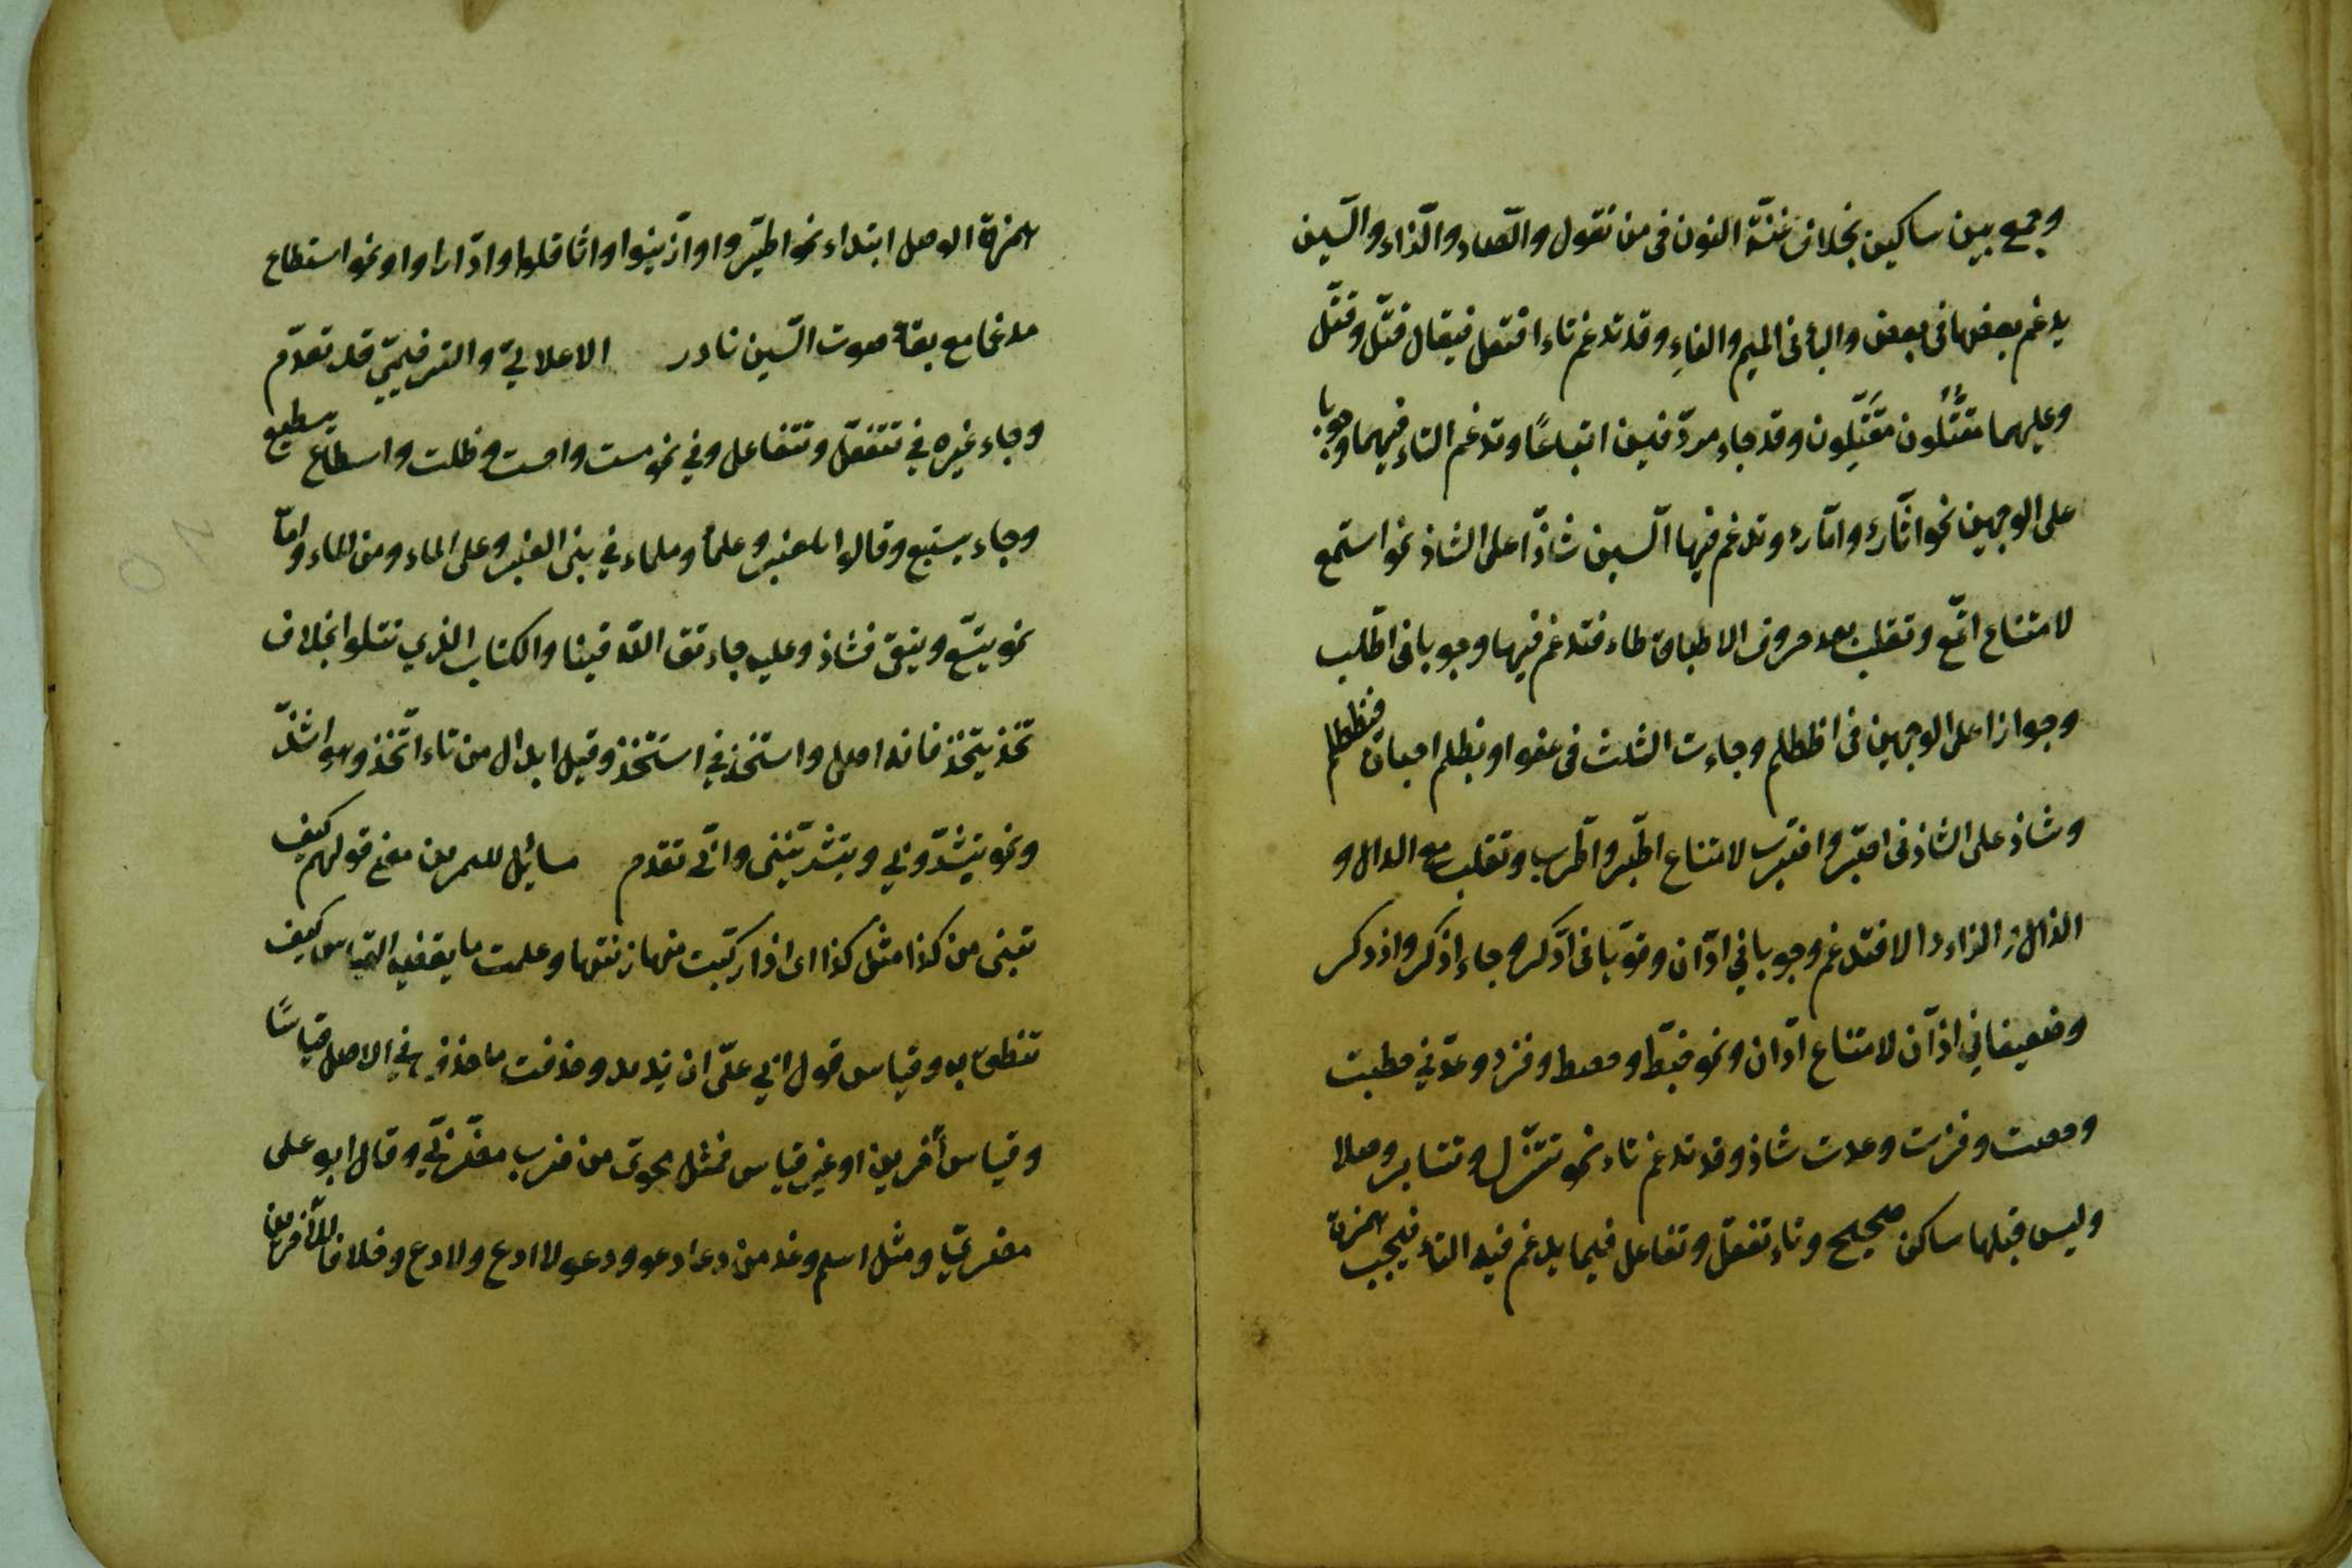 وجمع بين ساكنين بخلاف غنّة النون فى من نقول والصّاد والزّاء والسّين
يدغم بعضها فى بعض والبأ فى الميم والفاءِ وقد تدغم تاء افتعل فيقال قتّل وقتّل
وعليهما مقتّلون مقتّلون وقد جاء مردّفين اتباعًا وتدغم الثاء فيهما وجوبا
على الوجهين نحو اثّارَ واتّارَ وتدغم فيها السّين شاذّا على الشاذ نحو استمع
لامتناع اتّمع وتقلب بعد حروف الاطباق طاء فتدغم فيها وجوبا فى اطّلب
وجوازا على الوجهين فى اظطلم وجاءت الثلث فى عفوا ويظلم احيانا فيظطلم
وشاذ على الشاذ فى اصّبر واضّرب لامتناع اطّبر واطّرب وتقلب مع الدال و
الذال و الزاء دالا فتدغم وجوبا في ادّان وقويّا فى ادّكر وجاء اذّكر واذدكر
وضعيفا في ازّان لامتناع ادّان ونحو خبطّ وحصط وفزد وعدّ في خبطت
وحصت وفزت وعدت شاذ وقد تدغم تاء نحو تتنزّل وتتنابزوا وصلا
وليس قبلها ساكن صحيح وتاء تفعّل وتفاعل فيما يدغم فيه التاء فيجب همزة
همزة الوصل ابتداء نحو اطيّروا وازّينوا واثّاقلوا وادّاراوا ونحو اسطاع
مدغما مع بقاء صوت السّين نادر الاعلاليّ والترخيميّ قد تقدّم
وجاء غيره في تتفعّل وتتفاعل وفي نحو مست واحست وظلت واسطاع يسطيع
وجاء يستيع وقالوا بلعنبر وعلمأ وملماء في بنى العنبر وعلى الماء ومن الماء وامّا
نحو يتّسع ويتّقى فشاذ وعليه جاء تق الله فينا والكتاب الذي تتلوا بخلاف
تخذ يتخذ فانه اصل واستخذ في استتخذ وقيل ابدال من تاء اتّخذ وهو اشذّ
ونحو تبشّروني وتبشّريننى وانّى تقدم مسائل للتمرين معنى قولهم كيف
تبنى من كذا مثل كذا اى اذا ركبت منها زنتها وعلمت ما يقتضيه القياس كيف
تنطق به وقياس قول ابي علىّ ان تزيد وحذفت ما حذف في الاصل قياسًا
وقياس آخرين او غير قياس فمثل محوى من ضرب مضرّبيّ وقال ابو على
مضريّ ومثل اسم وغد من دعا دعو ودعو لا ادع ولا دع وخلافا للآخرين